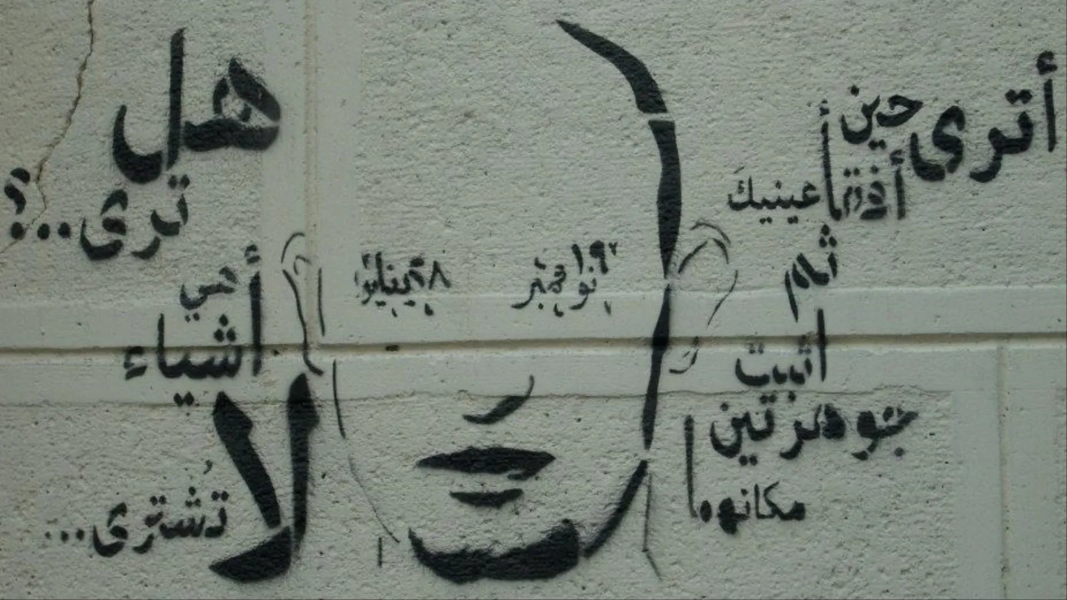 أترى حين
أفقأ عينيكَ
ثم
أثبت
جوهرتين
مكانهما
١٩
نوفمبر
٢٨ يناير
هل
ترى...؟
هي
أشياء
لا
تُشترى...